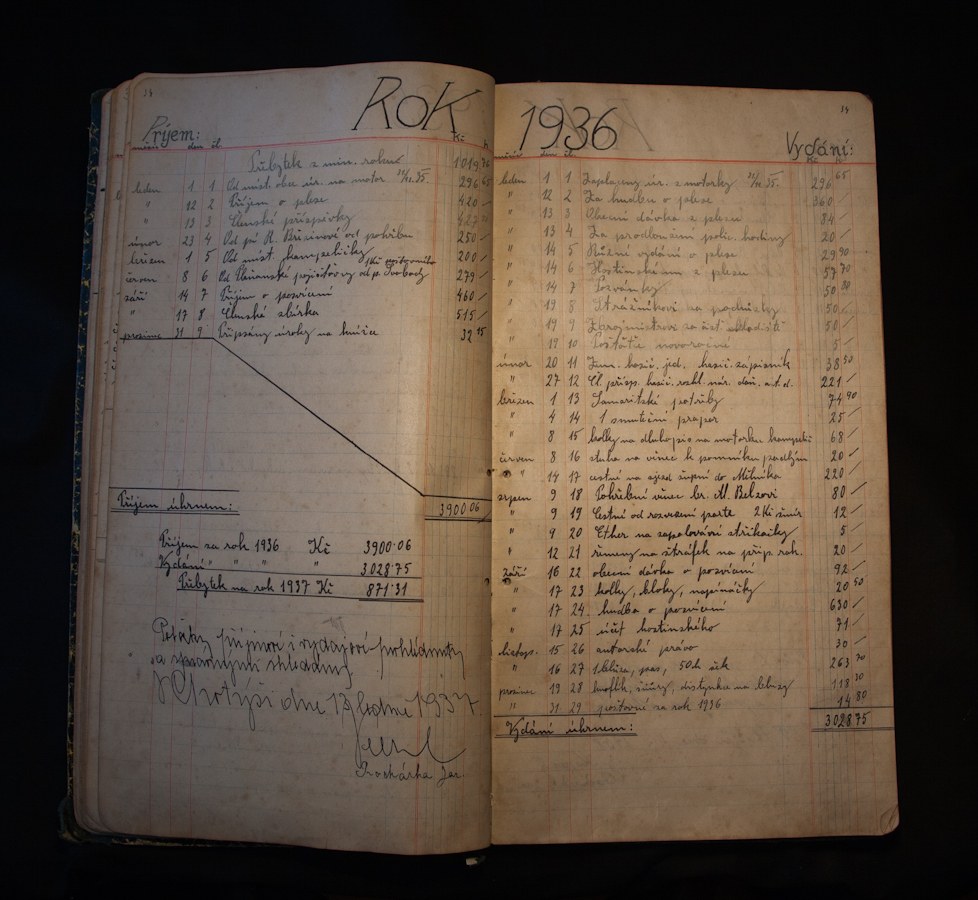 34
Rok
Příjem:
Kč h
Přebytek z min. roku 1019
leden 1 1 Od míst. obce úr. na motor 31/XII.35. 296 65
" 12 2 Příjem o plese 420 –
" 13 3 Členské příspěvky
únor 23 4 Od pí R. Březinové od pohřbu 250 –
březen 1 5 Od míst. 200 –
červen 8 6 Od Slovanské pojišťovny od p. Svobody 279 –
září 14 7 Příjem o posvícení 460 –
" 17 8 Členská sbírka 515 –
prosinec 31 9 Připsány úroky na knížce 32 15
Příjem úhrnem: 3900 06
Příjem za rok 1936 Kč 3900·06
Vydání " " " " 3028·75
Přebytek na rok 1937 Kč 871·31
Položky příjmové i vydajové prohlédnuty
a správnými shledány
V Chotýši dne 19 ledna 1937.
Procházka Jar.
34
1936
Vydání:
leden 1 1 Zaplaceny úr. z motorky 31/XII.35. 296 65
" 12 2 Za hudbu o plese 360 –
" 13 3 Obecní dávka z plesu 84 –
" 13 4 Za prodloužení polic. hodiny 20 –
" 14 5 Různé vydání o plese 29 90
" 14 6 Hostinskému z plesu 57 70
" 14 7 Pozvánky 50 80
" 19 8 Strážníkovi na podničky 50 –
" 19 9 50 –
" 19 10 novoročné 5 –
únor 20 11 hasič. jed. hasič. zápisník 38 50
" 27 12 Čl. přísp. hasič. rozhl. nár. daň. a.t.d. 221 –
březen 1 13 Samaritské potřeby 74 90
" 4 14 1 smuteční prapor 25 –
" 8 15 kolky na dlužopis na motorku 68 –
červen 8 16 stuha na věnec k pomníku padlým 20 –
" 14 17 cestní na sjezd župní do Mělníka 220 –
srpen 9 18 Pohřební věnec br. M. Belzovi 80 –
" 9 19 Cestné od roznesení parte 2 Kč 12 –
" 9 20 Ether na zapalování stříkačky 5 –
" 12 21 řemeny na na příp. rok. 20 –
září 16 22 obecní dávka o posvícení 92 –
" 17 23 kolky, bloky, napínáčky 20 50
" 17 24 hudba o posvícení 630 –
" 17 25 účet hostinského 71 –
listop. 15 26 autorské právo 30 –
" 16 27 1 blůza, pas, 263 70
prosinec 19 28 knoflík, šňůry, distinkce na blůzy 118 30
" 31 29 poštovné za rok 1936 14 80
Vydání úhrnem: 3028 75